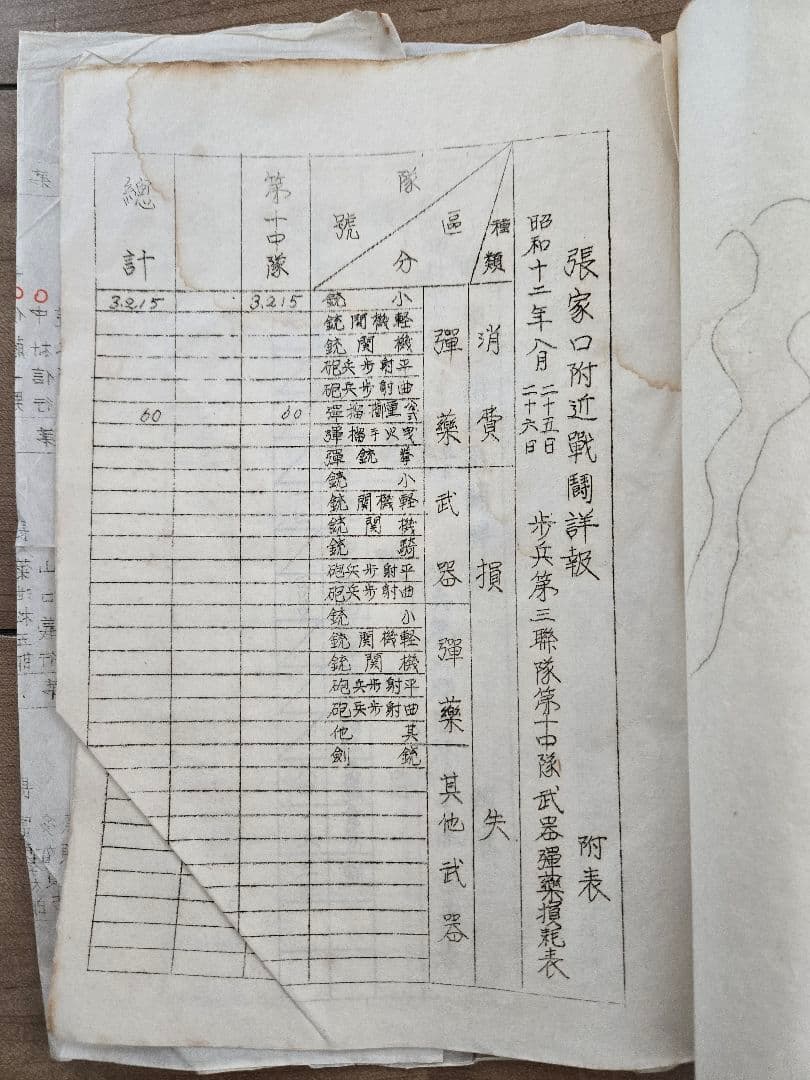 張家口附近戰鬪詳報 附表
昭和十二年八月二十五日二十六日 歩兵第三聯隊第十中隊武器彈藥損耗表
種類
區分
隊號
第十中隊
總計
消費
彈藥
小銃 3.215 3.215
軽機関銃
機関銃
平射歩兵砲
曲射歩兵砲
重擲榴彈 60 60
曳火手榴彈
拳銃彈
損失
武器
小銃
軽機関銃
機関銃
騎銃
平射歩兵砲
曲射歩兵砲
彈藥
小銃
軽機関銃
機関銃
平射歩兵砲
曲射歩兵砲
其他
其他武器
銃劍